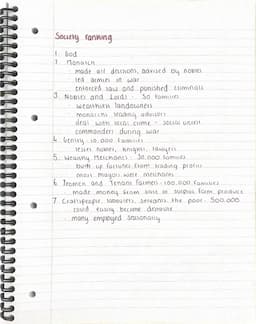 Society ranking
1. God
2. Monarch
- made all decisions, advised by nobles
- led armies at war
- enforced law and punished criminals
3. Nobles and Lords - 50 families
- wealthiest landowners
- monarchs leading advisors
- deal with local crime + social unrest
- commanders during war
4. Gentry - 10,000 families
- lesser nobles, knights, lawyers
5. Wealthy Merchants - 30,000 families
- built up fortunes from trading profits
- most mayors were merchants
6. Yeomen and Tenant Farmers - 100,000 families
- made money from sale of surplus farm produce
7. Craftspeople, labourers, servants, the poor - 500,000
- could easily become destitute
- many employed seasonally